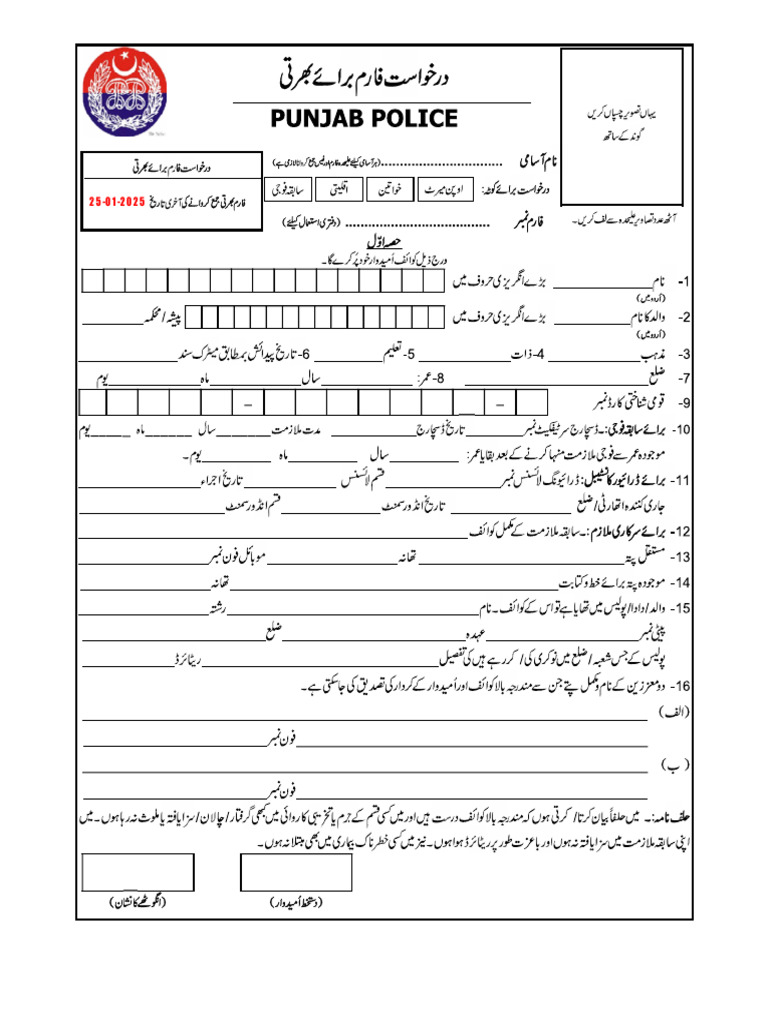 درخواست فارم برائے بھرتی
PUNJAB POLICE
یہاں تصویر چسپاں کریں
گوند کے ساتھ
نام آسامی .............................. (ہر آسامی کیلئے علیحدہ فارم اور فیس جمع کروانا لازمی ہے)
درخواست فارم برائے بھرتی
فارم بھرتی جمع کروانے کی آخری تاریخ 25-01-2025
درخواست برائے کوٹہ: اوپن میرٹ خواتین اقلیتی سابقہ فوجی
فارم نمبر .................................... (دفتری استعمال کیلئے)
آٹھ عدد تصاویر علیحدہ سے لف کریں۔
حصہ اوّل
درج ذیل کوائف اُمیدوار خود پُر کرے گا۔
1- نام ____________ بڑے انگریزی حروف میں
(اُردو میں)
2- والد کا نام ____________ بڑے انگریزی حروف میں پیشہ/محکمہ ____________
(اُردو میں)
3- مذہب ____________ 4- ذات ____________ 5- تعلیم ____________ 6- تاریخ پیدائش بمطابق میٹرک سند ____________
7- ضلع ____________ 8- عمر: ____________ سال ____________ ماہ ____________ یوم
9- قومی شناختی کارڈ نمبر – –
10- برائے سابقہ فوجی:۔ ڈسچارج سرٹیفکیٹ نمبر ____________ تاریخ ڈسچارج ____________ مدت ملازمت ______ سال ______ ماہ ______ یوم
موجودہ عمر سے فوجی ملازمت منہا کرنے کے بعد بقایا عمر: ____________ سال ____________ ماہ ____________ یوم۔
11- برائے ڈرائیور کانسٹیبل: ڈرائیونگ لائسنس نمبر ____________ قسم لائسنس ____________ تاریخ اجراء ____________
جاری کنندہ اتھارٹی/ضلع ____________ تاریخ انڈورسمنٹ ____________ قسم انڈورسمنٹ ____________
12- برائے سرکاری ملازم:۔ سابقہ ملازمت کے مکمل کوائف ____________
13- مستقل پتہ ____________ تھانہ ____________ موبائل فون نمبر ____________
14- موجودہ پتہ برائے خط و کتابت ____________ تھانہ ____________
15- والد/دادا/پولیس میں تھا یا ہے تو اس کے کوائف۔ نام ____________ رشتہ ____________
پیٹی نمبر ____________ عہدہ ____________ ضلع ____________
پولیس کے جس شعبہ/ضلع میں نوکری کی/کر رہے ہیں کی تفصیل ____________ ریٹائرڈ ____________
16- دو معززین کے نام و مکمل پتے جن سے مندرجہ بالا کوائف اور اُمیدوار کے کردار کی تصدیق کی جا سکتی ہے۔
(الف) ____________
فون نمبر ____________
(ب) ____________
فون نمبر ____________
حلف نامہ:۔ میں حلفاً بیان کرتا/کرتی ہوں کہ مندرجہ بالا کوائف درست ہیں اور میں کسی قسم کے جرم یا تخریبی کاروائی میں کبھی گرفتار/چالان/سزا یافتہ یا ملوث نہ رہا ہوں۔ میں
اپنی سابقہ ملازمت میں سزا یافتہ نہ ہوں اور باعزت طور پر ریٹائرڈ ہوا ہوں۔ نیز میں کسی خطرناک بیماری میں بھی مبتلا نہ ہوں۔
(دستخط اُمیدوار) (انگوٹھے کا نشان)